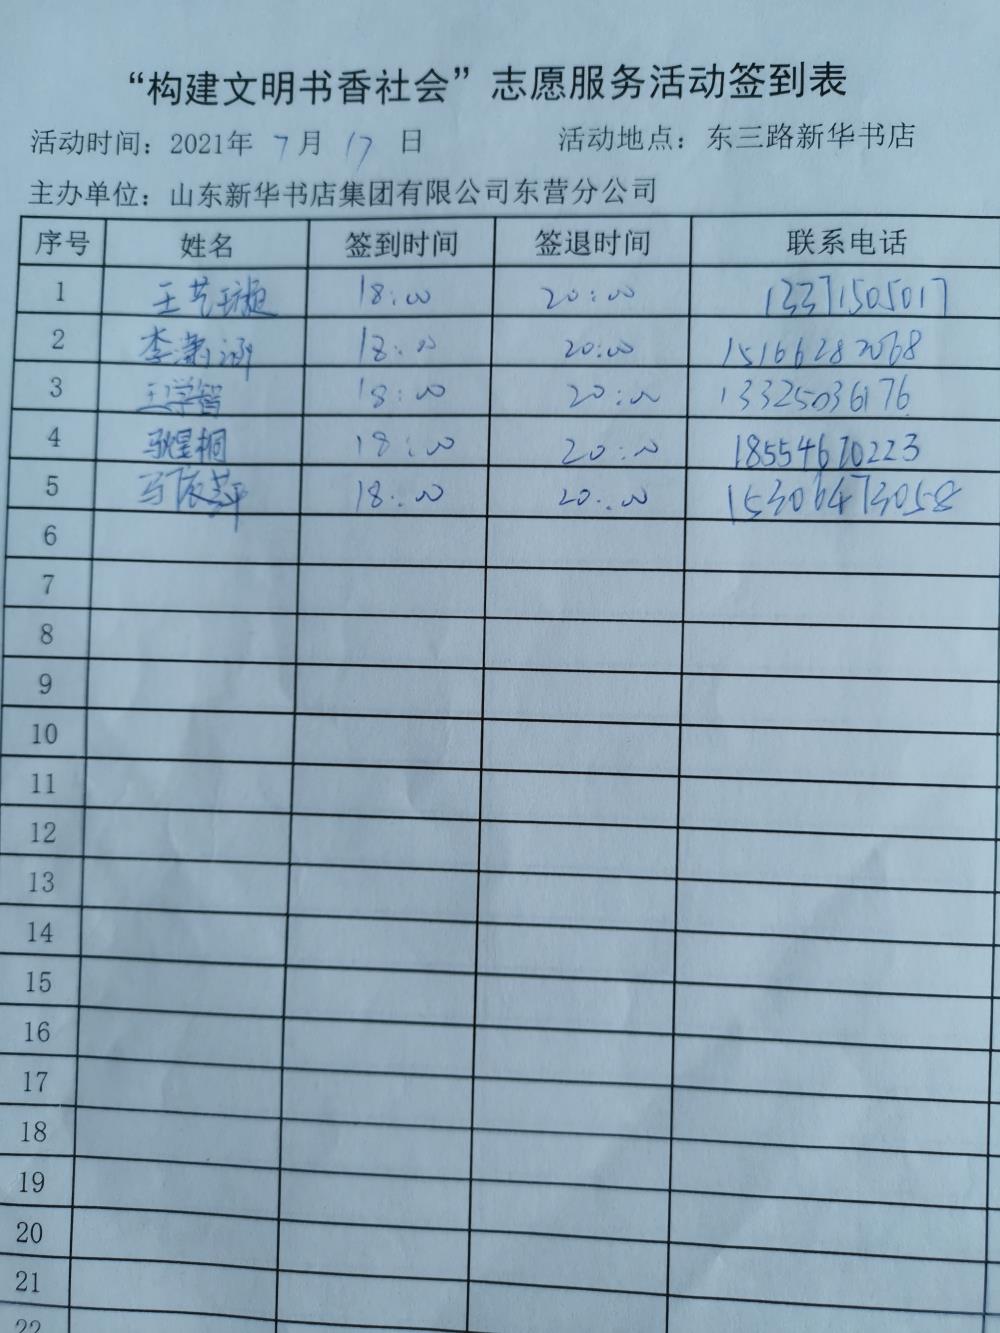 “构建文明书香社会”志愿服务活动签到表
活动时间：2021年 7 月 17 日 活动地点：东三路新华书店
主办单位：山东新华书店集团有限公司东营分公司
序号 姓名 签到时间 签退时间 联系电话
1 王艺璇 18:00 20:00 13371505017
2 李潇涵 18:00 20:00 15166282068
3 王学智 18:00 20:00 13325036176
4 煜桐 18:00 20:00 18554670223
5 马 萍 18:00 20:00 15306473058
6
7
8
9
10
11
12
13
14
15
16
17
18
19
20
21
22